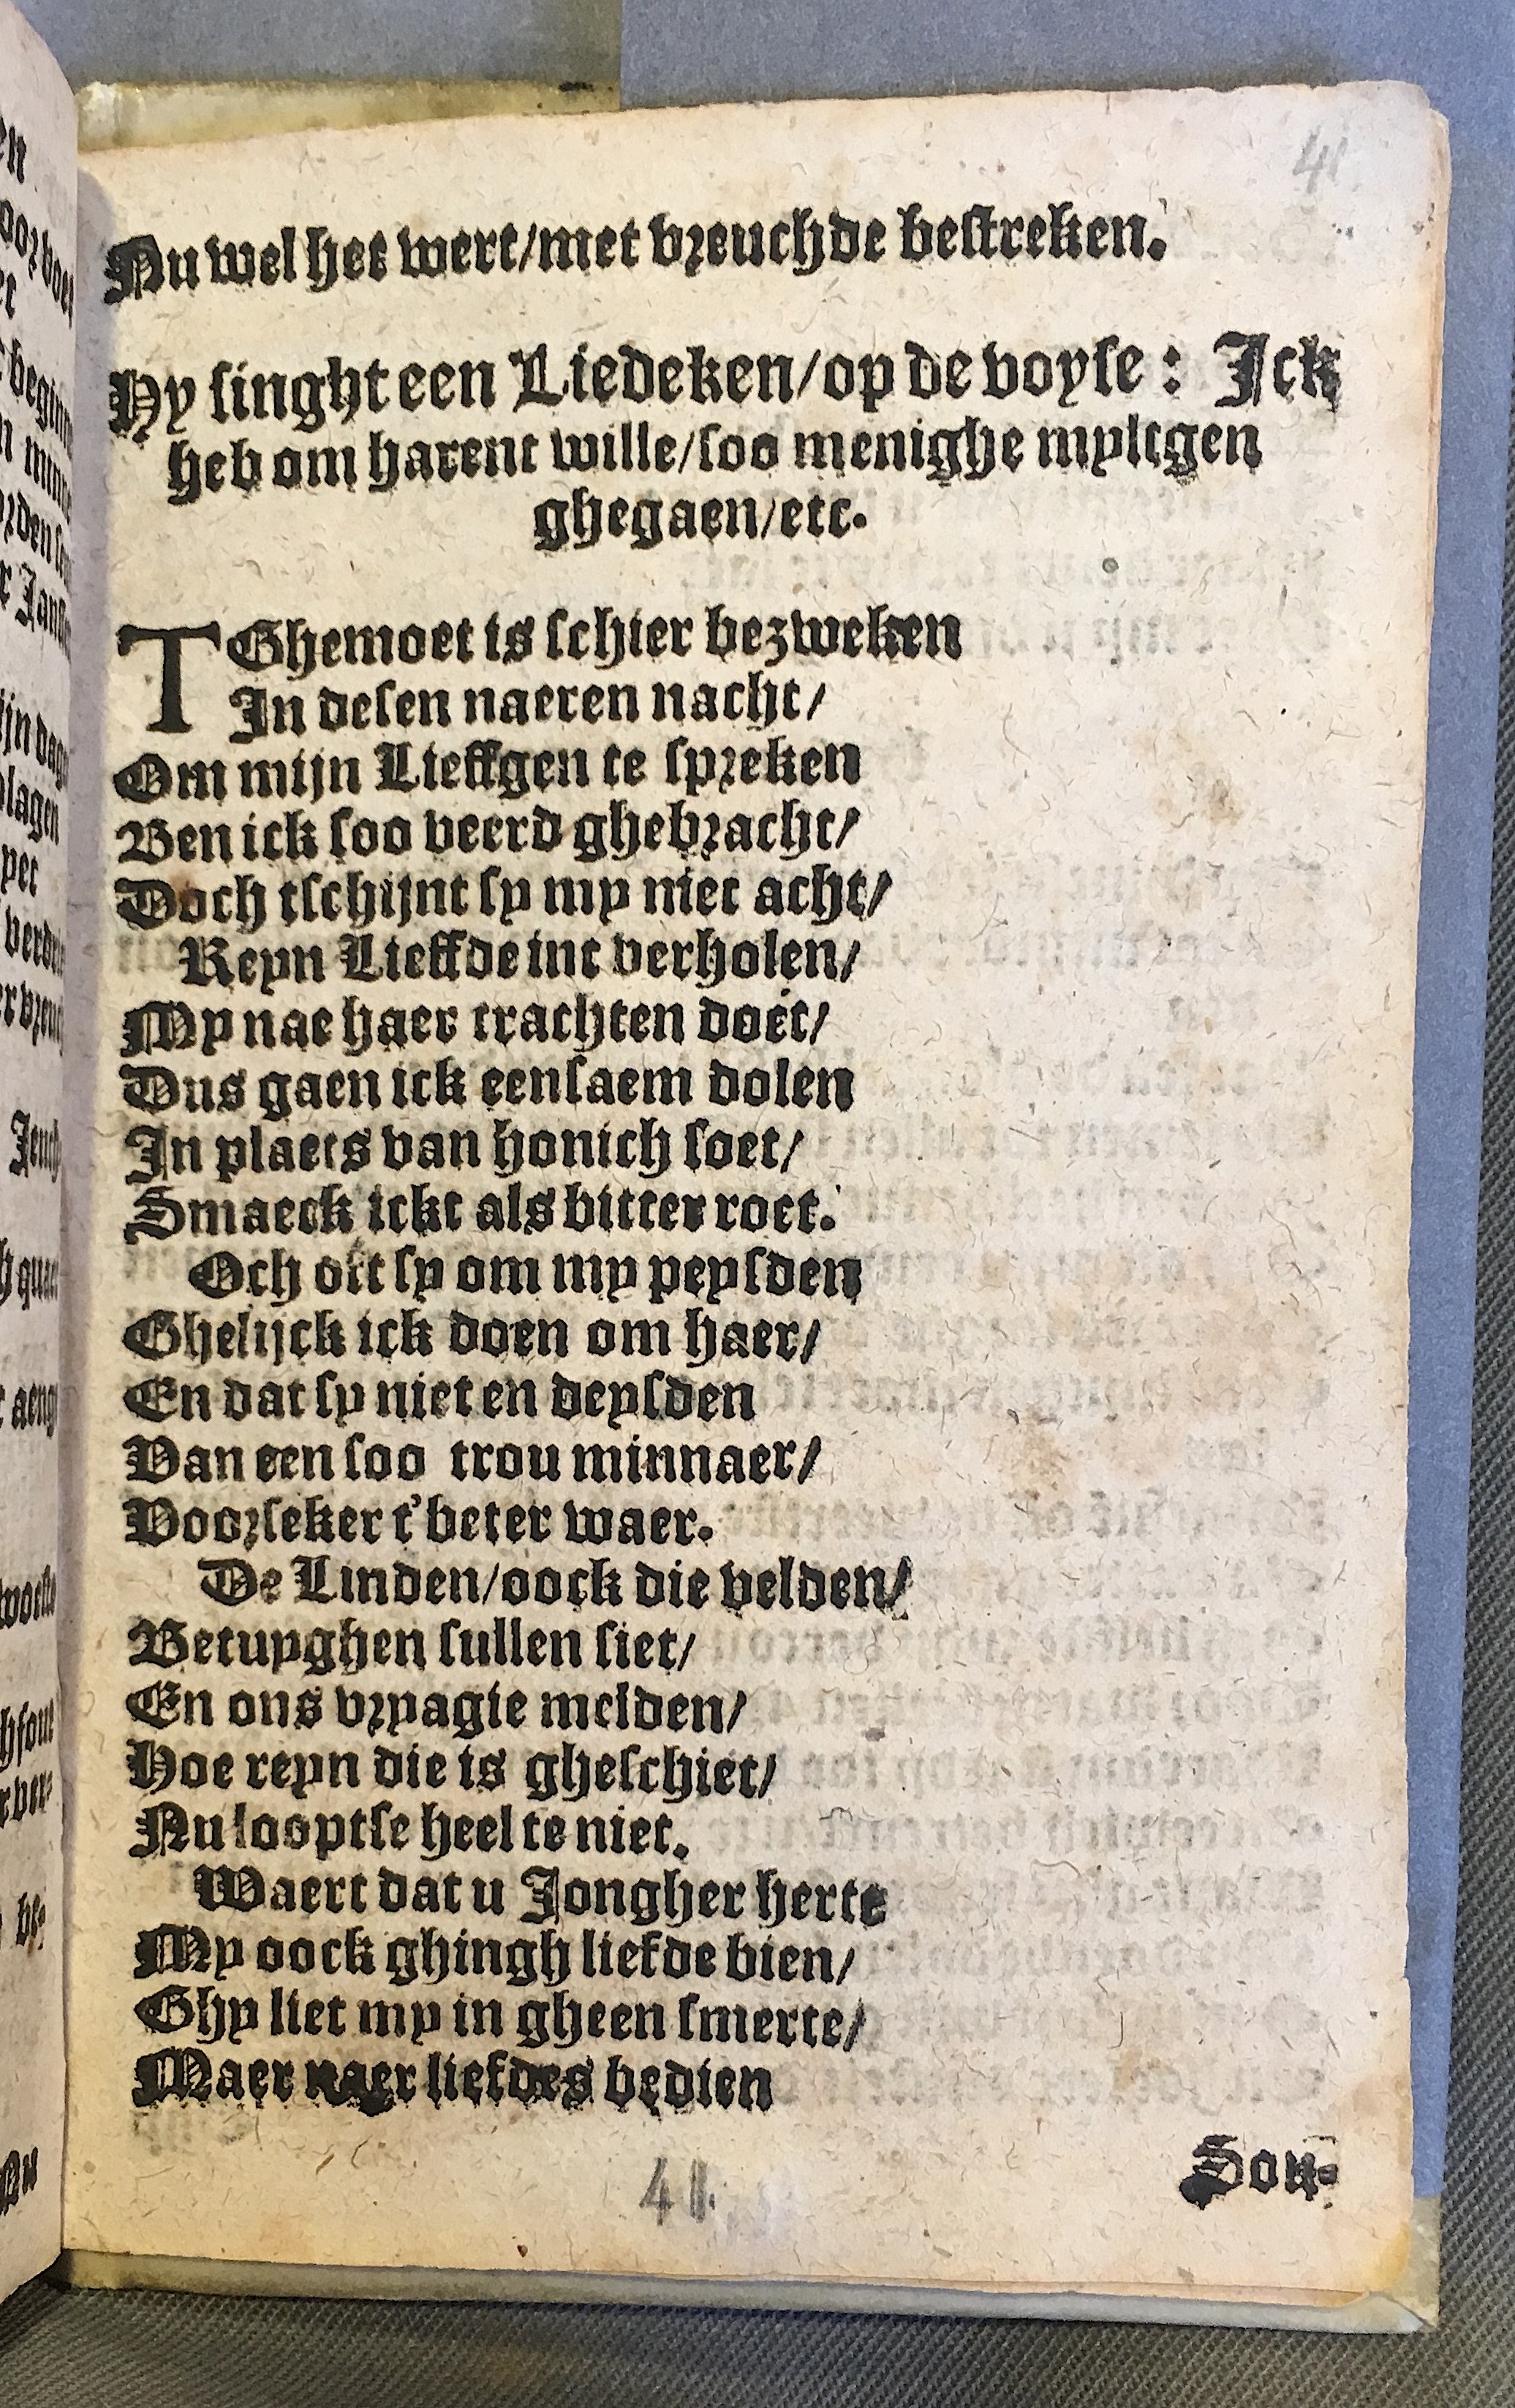 41
Nu wel het wert/met vreuchde bestreken.
Hy singht een Liedeken/op de voyse: Ick
heb om harent wille/soo menighe myltgen
ghegaen/etc.
TGhemoet is schier bezweken
In desen naeren nacht/
Om mijn Lieffgen te spreken
Ben ick soo veerd ghebracht/
Doch tschijnt sy my niet acht/
Reyn Lieffde int verholen/
My nae haer trachten doet/
Dus gaen ick eensaem dolen
In plaets van honich soet/
Smaeck ickt als bitter roet.
Och oft sy om my peysden
Ghelijck ick doen om haer/
En dat sy niet en deysden
Van een soo trou minnaer/
Voorseker t'beter waer.
De Linden/oock die velden/
Betuyghen sullen siet/
En ons vryagie melden/
Hoe reyn die is gheschiet/
Nu looptse heel te niet.
Waert dat u Jongher herte
My oock ghingh liefde bien/
Ghy liet my in gheen smerte/
Maer naer liefdes bedien
Son-
41.